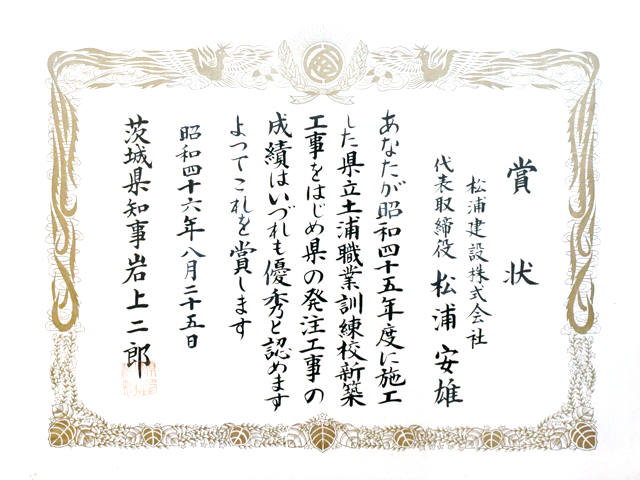 賞状
松浦建設株式会社
代表取締役 松浦安雄
あなたが昭和四十五年度に施工
した県立土浦職業訓練校新築
工事をはじめ県の発注工事の
成績はいづれも優秀と認めます
よつてこれを賞します
昭和四十六年八月二十五日
茨城県知事 岩上二郎